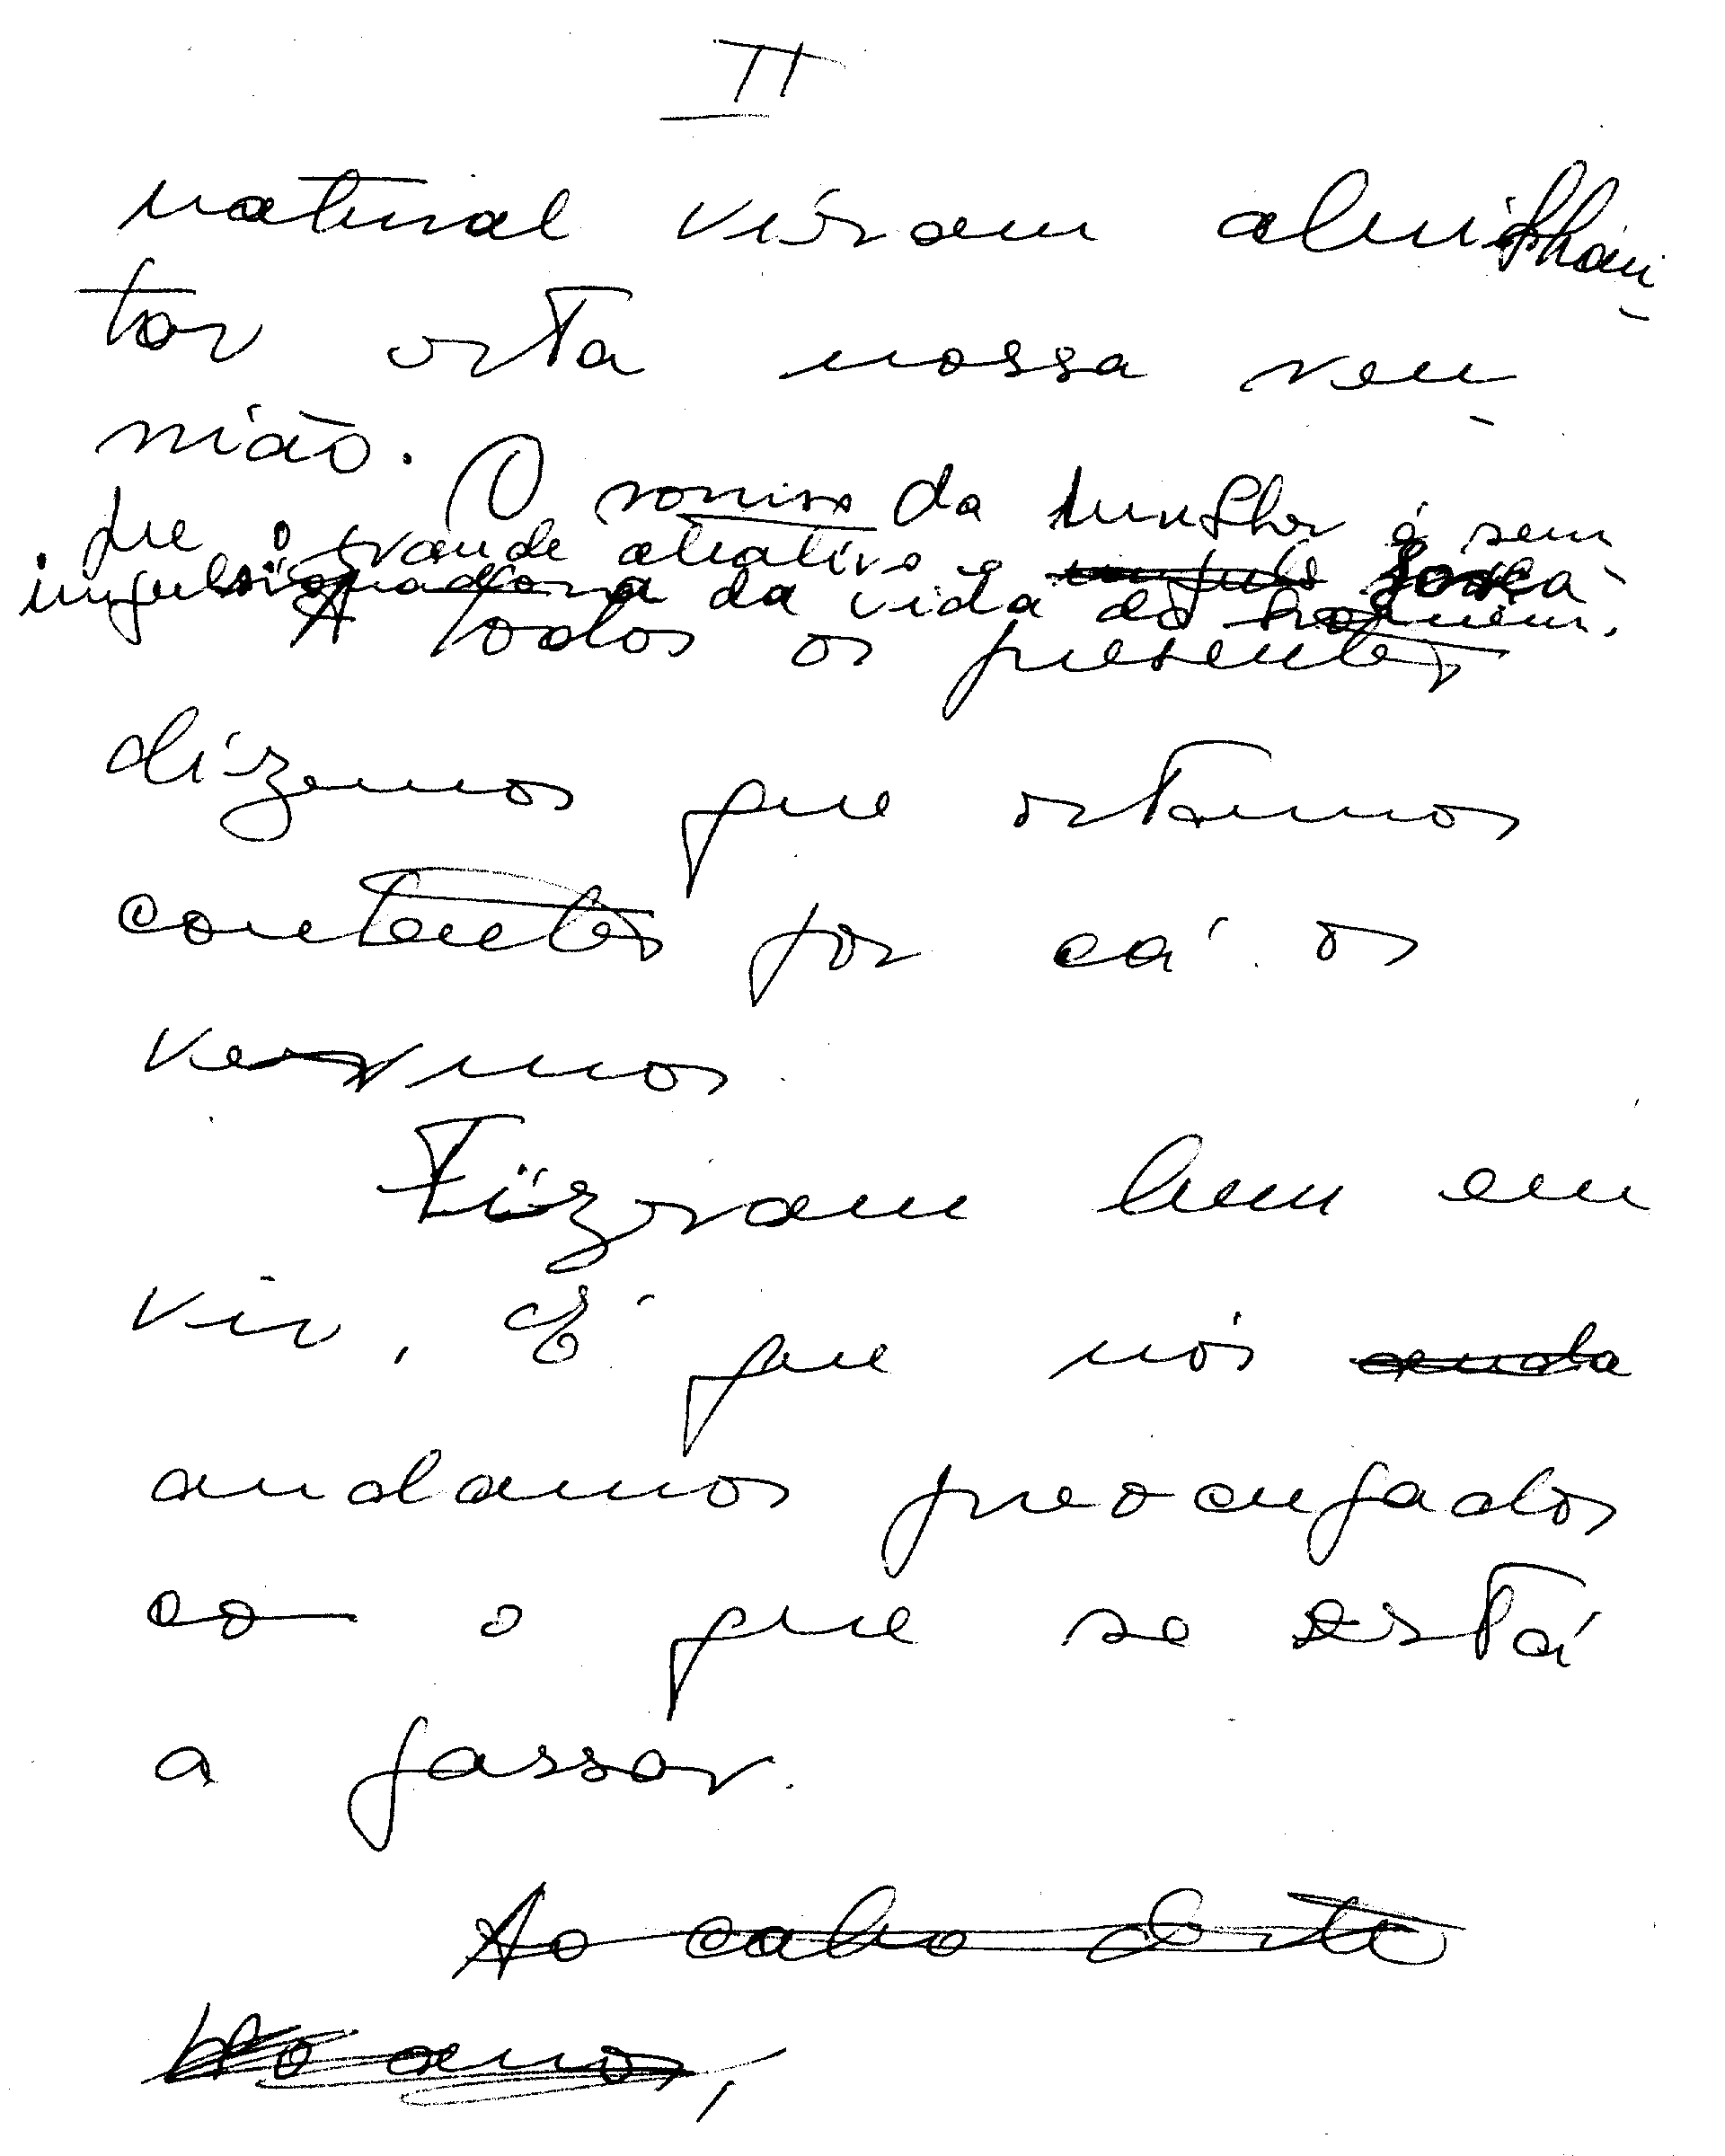 II
natural vieram abrilhan-
tar esta nossa reu-
nião.
O sorriso da mulher é sem
pre o grande atrativo e força
impulsionadora da vida do homem.
A todos os presentes
dizemos que estamos
contentes por cá os
vermos.
Fizeram bem em
vir, É que nós anda
andamos preocupados
co o que se está
a passar.
Ao cabo deste
anos,